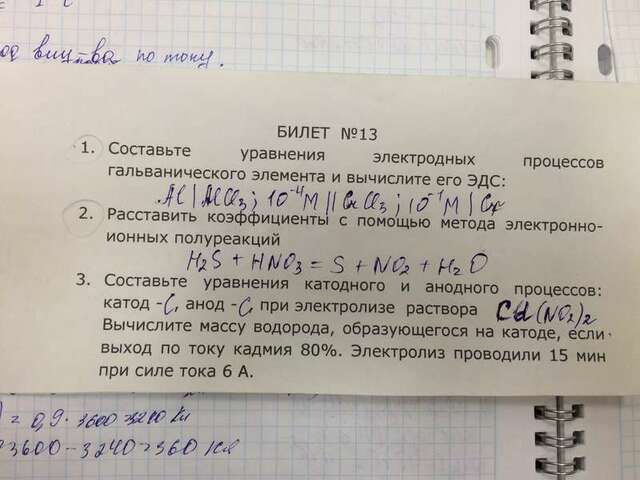 БИЛЕТ №13
1. Составьте уравнения электродных процессов
гальванического элемента и вычислите его ЭДС:
Al | AlCl₃; 10⁻⁴M || CrCl₃; 10⁻¹M | Cr
2. Расставить коэффициенты с помощью метода электронно-
ионных полуреакций
H₂S + HNO₃ = S + NO₂ + H₂O
3. Составьте уравнения катодного и анодного процессов:
катод - C, анод - C, при электролизе раствора Cd(NO₃)₂
Вычислите массу водорода, образующегося на катоде, если
выход по току кадмия 80%. Электролиз проводили 15 мин
при силе тока 6 А.
по току.
3600 - 3240 = 360